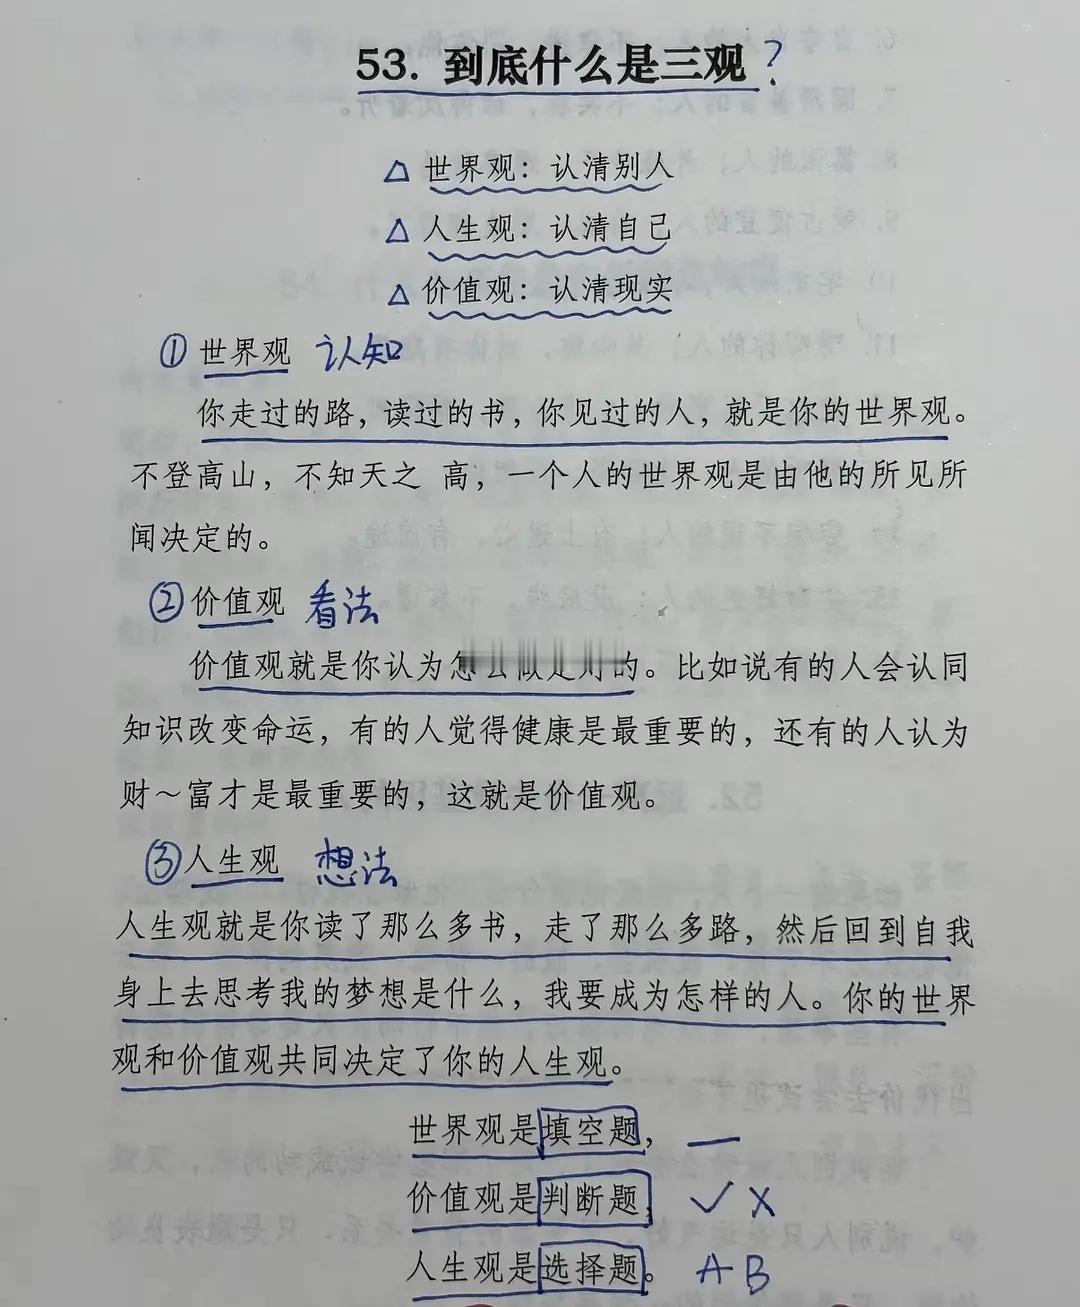 53. 到底什么是三观?
△ 世界观：认清别人
△ 人生观：认清自己
△ 价值观：认清现实
① 世界观 认知
你走过的路，读过的书，你见过的人，就是你的世界观。
不登高山，不知天之 高，一个人的世界观是由他的所见所
闻决定的。
② 价值观 看法
价值观就是你认为怎么做是对的。比如说有的人会认同
知识改变命运，有的人觉得健康是最重要的，还有的人认为
财～富才是最重要的，这就是价值观。
③ 人生观 想法
人生观就是你读了那么多书，走了那么多路，然后回到自我
身上去思考我的梦想是什么，我要成为怎样的人。你的世界
观和价值观共同决定了你的人生观。
世界观是填空题， —
价值观是判断题 ✓ X
人生观是选择题。 A B